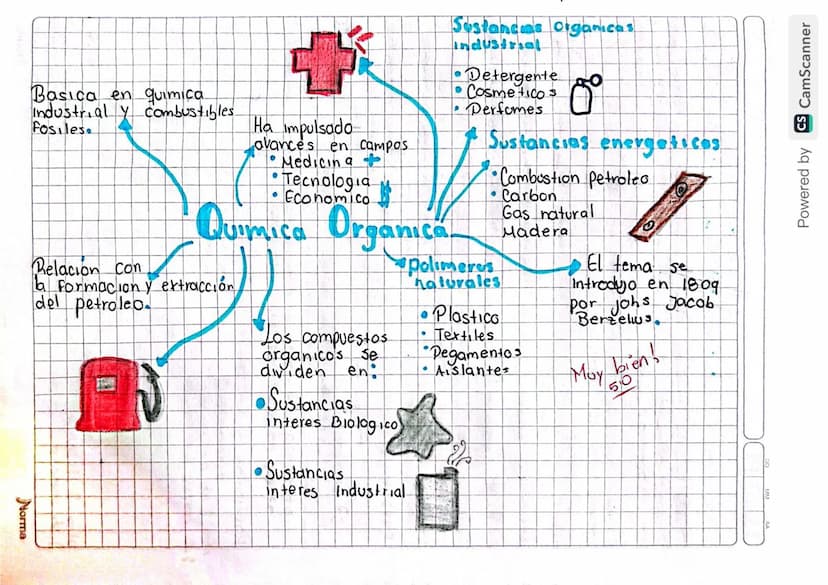 Sustancias Organicas
industrial
• Detergente
• Cosmeticos
• Perfomes
Basica en quimica
industrial y combustibles
fosiles.
Ha impulsado
avances en campos
• Medicina +
• Tecnologia
• Economico $
Sustancias energeticas
• Combustion Petroleo
• Carbon
Gas natural
Madera
Quimica Organica
Relación con
la formacion y extracción
del petroleo.
polimeros
naturales
• Plastico
• Textiles
• Pegamentos
• Aislantes
El tema se
Introdujo en 1809
por johs Jacob
Berzelius.
Muy bien!
5.0
Los compuestos
organicos se
dividen en:
• Sustancias
interes Biologico
• Sustancias
interes Industrial
Norma
Powered by CS CamScanner